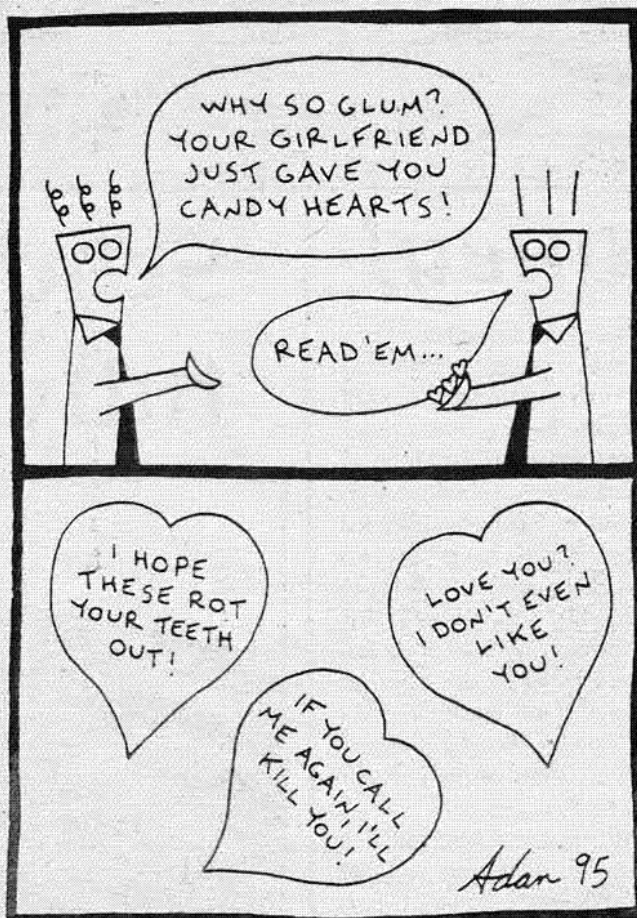 WHY SO GLUM?
YOUR GIRLFRIEND
JUST GAVE YOU
CANDY HEARTS!
READ 'EM...
I HOPE
THESE ROT
YOUR TEETH
OUT!
LOVE YOU?
I DON'T EVEN
LIKE
YOU!
IF YOU CALL
ME AGAIN I'LL
KILL YOU!
Adan 95